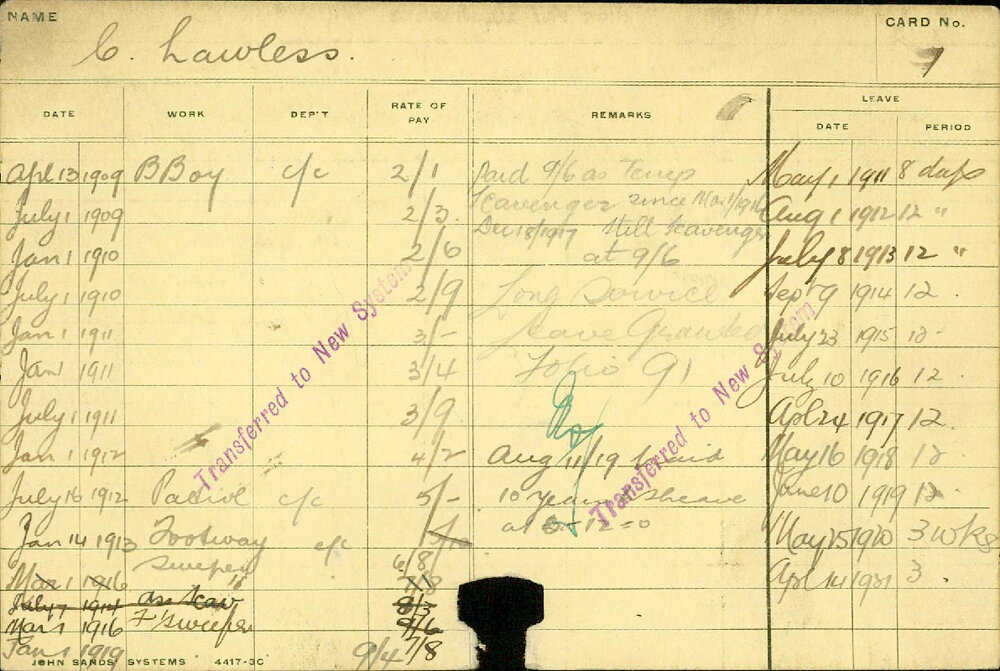 NAME
C. Lawless.
CARD No.
7
DATE WORK DEP'T RATE OF PAY REMARKS LEAVE
DATE PERIOD
Apl 13 1909 B Boy c/c 2/1 Paid 9/6 as temp May 1 1911 8 days
July 1 1909 2/3 Scavenger since Aug 1 1912 12 "
Dec 18/1917 still Scavenger
Jan 1 1910 2/6 at 9/6 July 8 1913 12 "
July 1 1910 2/9 Long Service Sept 9 1914 12 .
Jan 1 1911 3/- Leave Granted July 23 1915 12 -
Jan 1 1911 3/4 Folio 91 July 10 1916 12 .
July 1 1911 3/9 Apl 24 1917 12 .
Jan 1 1912 4/2 Aug 11/19 May 16 1918 12
July 16 1912 c/c 5/- 10 years June 10 1919 12 .
Jan 14 1913 Footway c/c at May 25 1920 3 wks
Sweeper 6/8
Mar 1 1916 " 7/8 Apl 14 1921 3 .
July 7 1914
Mar 1 1916 F Sweeper
Jan 1 1919 9/4 7/8
Transferred to New System
Transferred to New System
JOHN SANDS' SYSTEMS 4417-3C